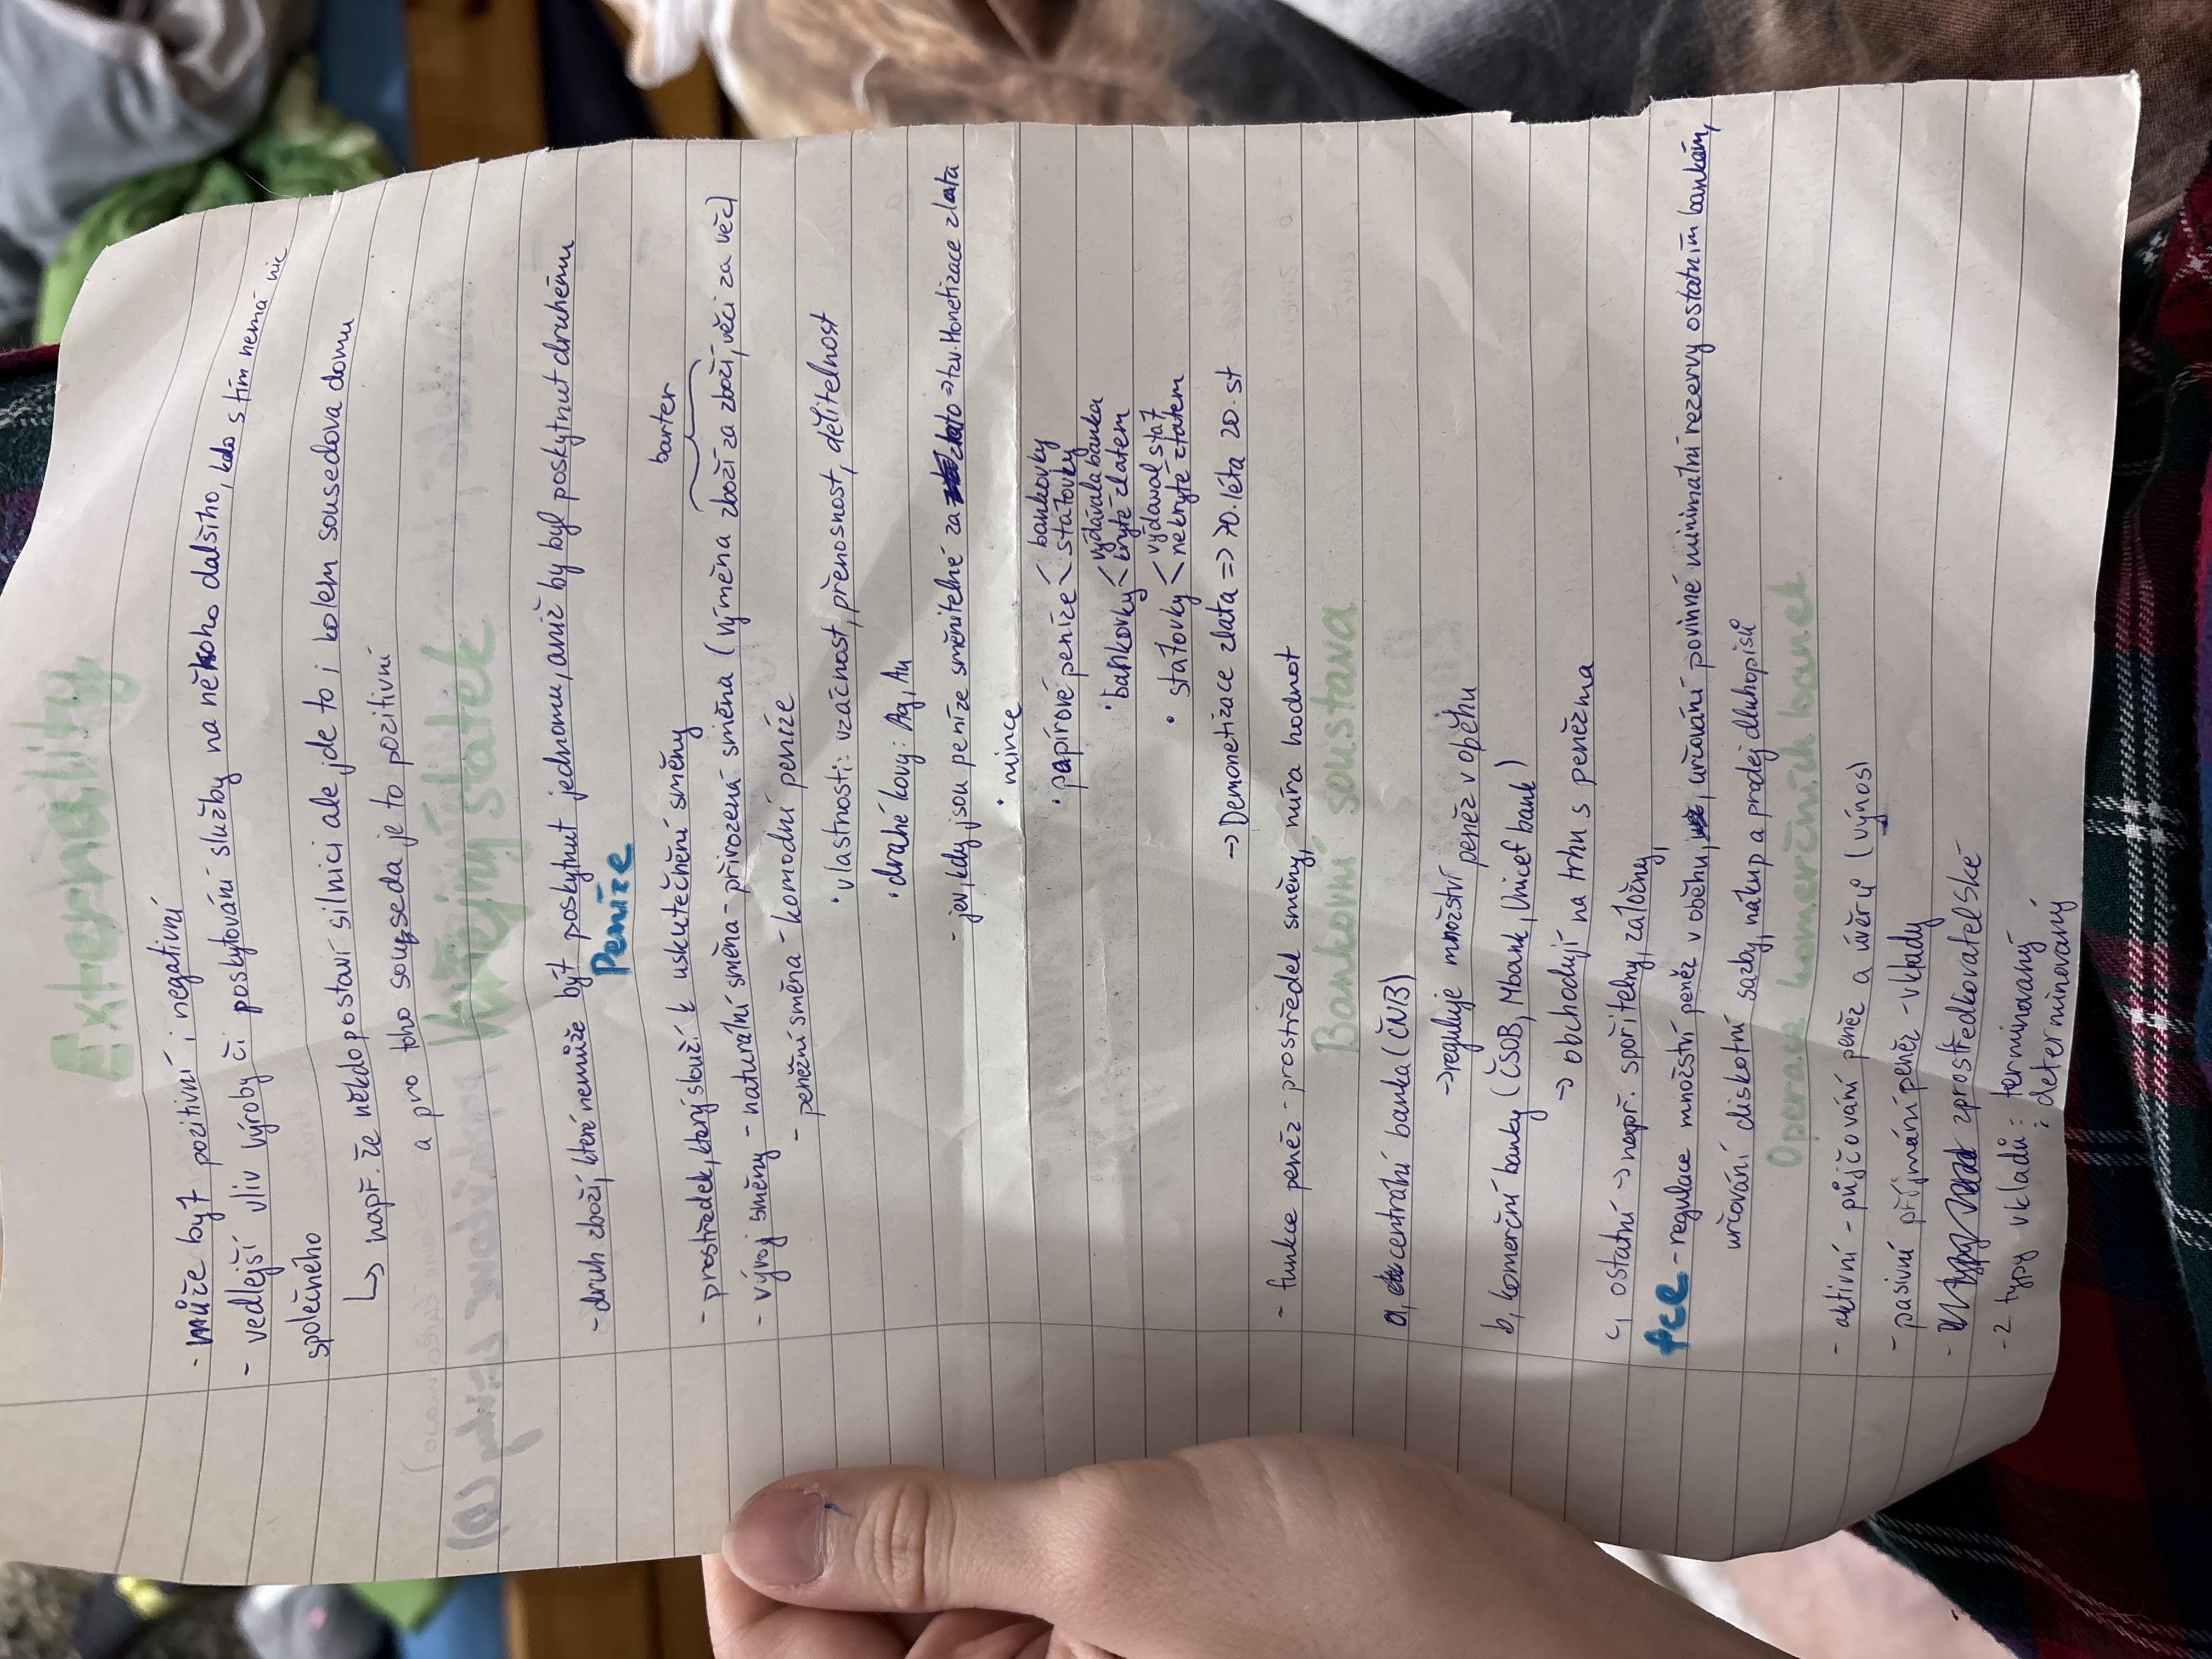 Externality
- může být pozitivní i negativní
- vedlejší vliv výroby či poskytování služby na někoho dalšího, kdo s tím nemá nic
společného
↳ např. že někdo postaví silnici ale jde to i kolem sousedova domu
a pro toho souseda je to pozitivní
Veřejný statek
- druh zboží, které nemůže být poskytnut jednomu, aniž by byl poskytnut druhému
Peníze
barter
- prostředek, který slouží k uskutečnění směny
- vývoj směny - naturální směna - přirozená směna (výměna zboží za zboží, věci za věc)
- peněžní směna - komodní peníze
• vlastnosti: vzácnost, přenosnost, dělitelnost
• drahé kovy: Ag, Au
- jev, kdy jsou peníze směnitelné za zlato => tzv. Monetizace zlata
• mince
• papírové peníze < bankovky
státovky
• bankovky < vydávala banka
kryté zlatem
• státovky < vydával stát
nekryté zlatem
→ Demonetizace zlata => 70. léta 20. st
- funkce peněz - prostředek směny, míra hodnot
Bankovní soustava
a, centrální banka (ČNB)
→ reguluje množství peněz v oběhu
b, komerční banky (ČSOB, Mbank, Unicef bank)
→ obchodují na trhu s penězma
c, ostatní → např. spořitelny, záložny,
fce - regulace množství peněz v oběhu, určování povinné minimální rezervy ostatním bankám,
určování diskotní sazby, nákup a prodej dluhopisů
Operace komerčních bank
- aktivní - půjčování peněz a úvěrů (výnos)
- pasivní příjmání peněz - vklady
- zprostředkovatelské
- 2 typy vkladů: terminovaný
: determinovaný